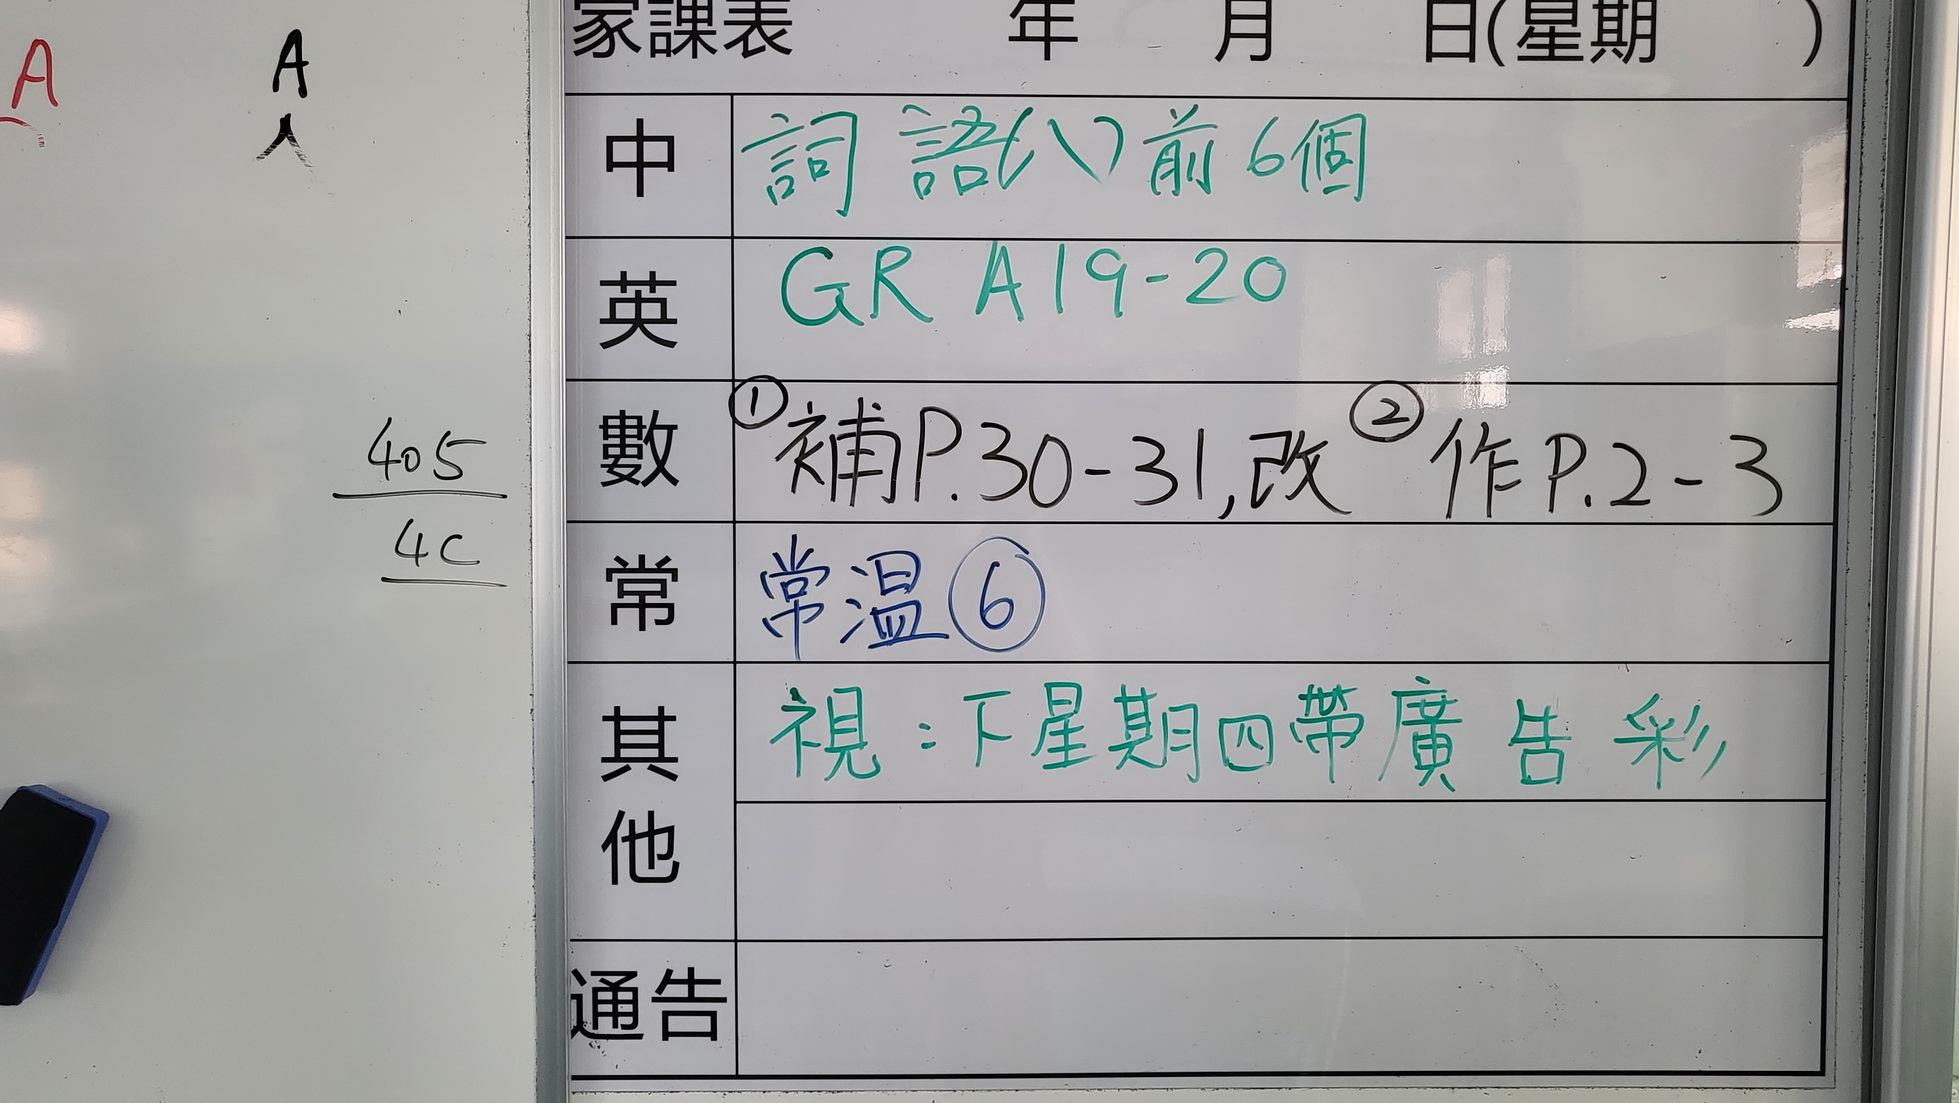 A
A
405
4C
家課表 年 月 日(星期 )
中 詞語(八)前6個
英 GR A19-20
數 ①補P.30-31,改 ②作P.2-3
常 常温⑥
其他 視:下星期四帶廣告彩
通告